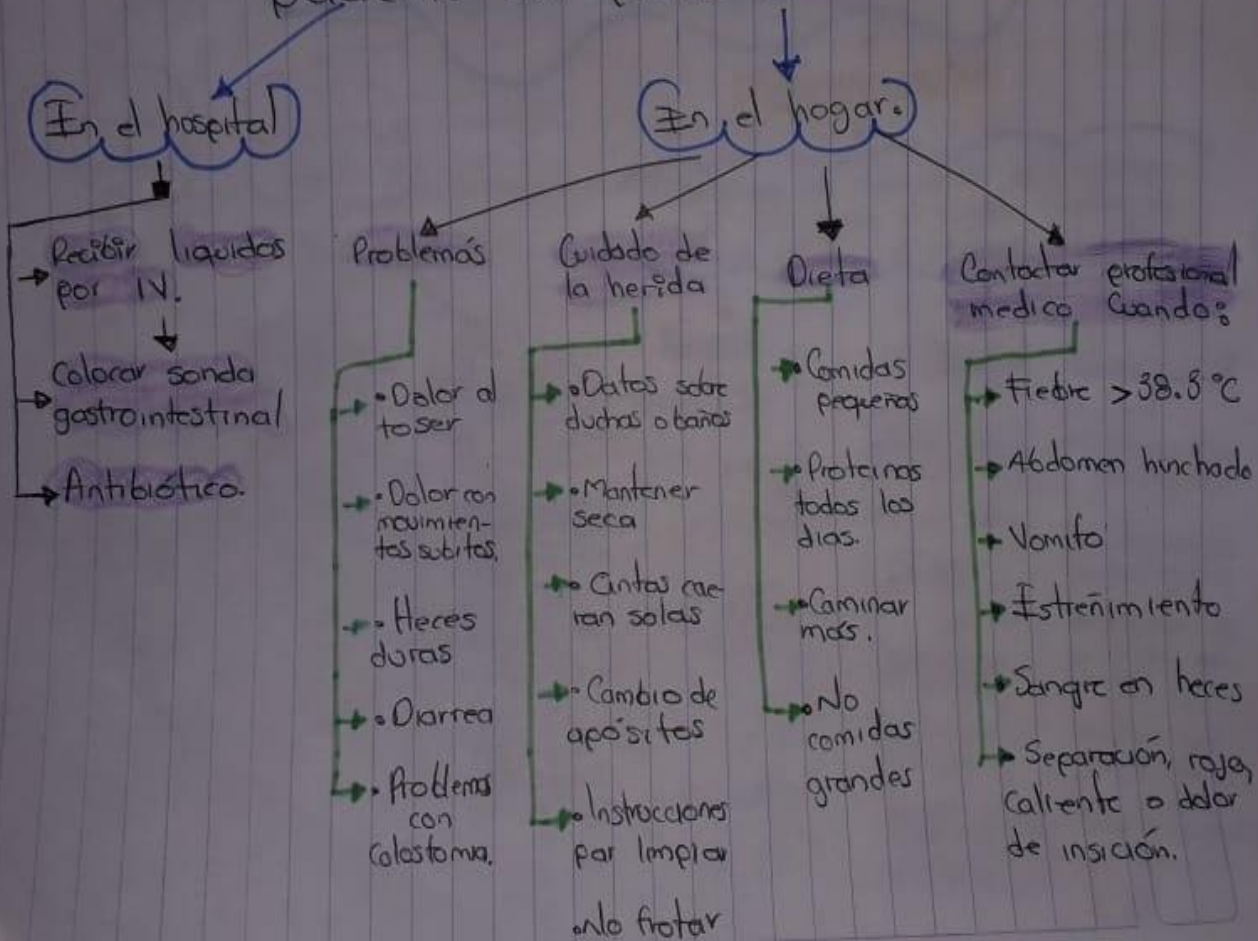 En el hospital
Recibir liquidos
por IV.
Colocar sonda
gastrointestinal
Antibiótico.
En el hogar.
Problemás
• Dolor al
toser
• Dolor con
movimien-
tos subitos.
• Heces
duras
• Diarrea
• Problems
con
Colostomia.
Cuidado de
la herida
• Datos sobre
duchas o baños
• Mantener
seca
• Cintas cae
ran solas
• Cambio de
apósitos
• Instrucciones
par limpiar
• No frotar
Dieta
• Comidas
pequeñas
• Proteinas
todos los
dias.
• Caminar
mas.
• No
comidas
grandes
Contactar profesional
medico Cuando:
Fiebre > 38.3 °C
Abdomen hinchado
Vomito
Estreñimiento
Sangre en heces
Separación, roja,
Caliente o dolor
de insición.